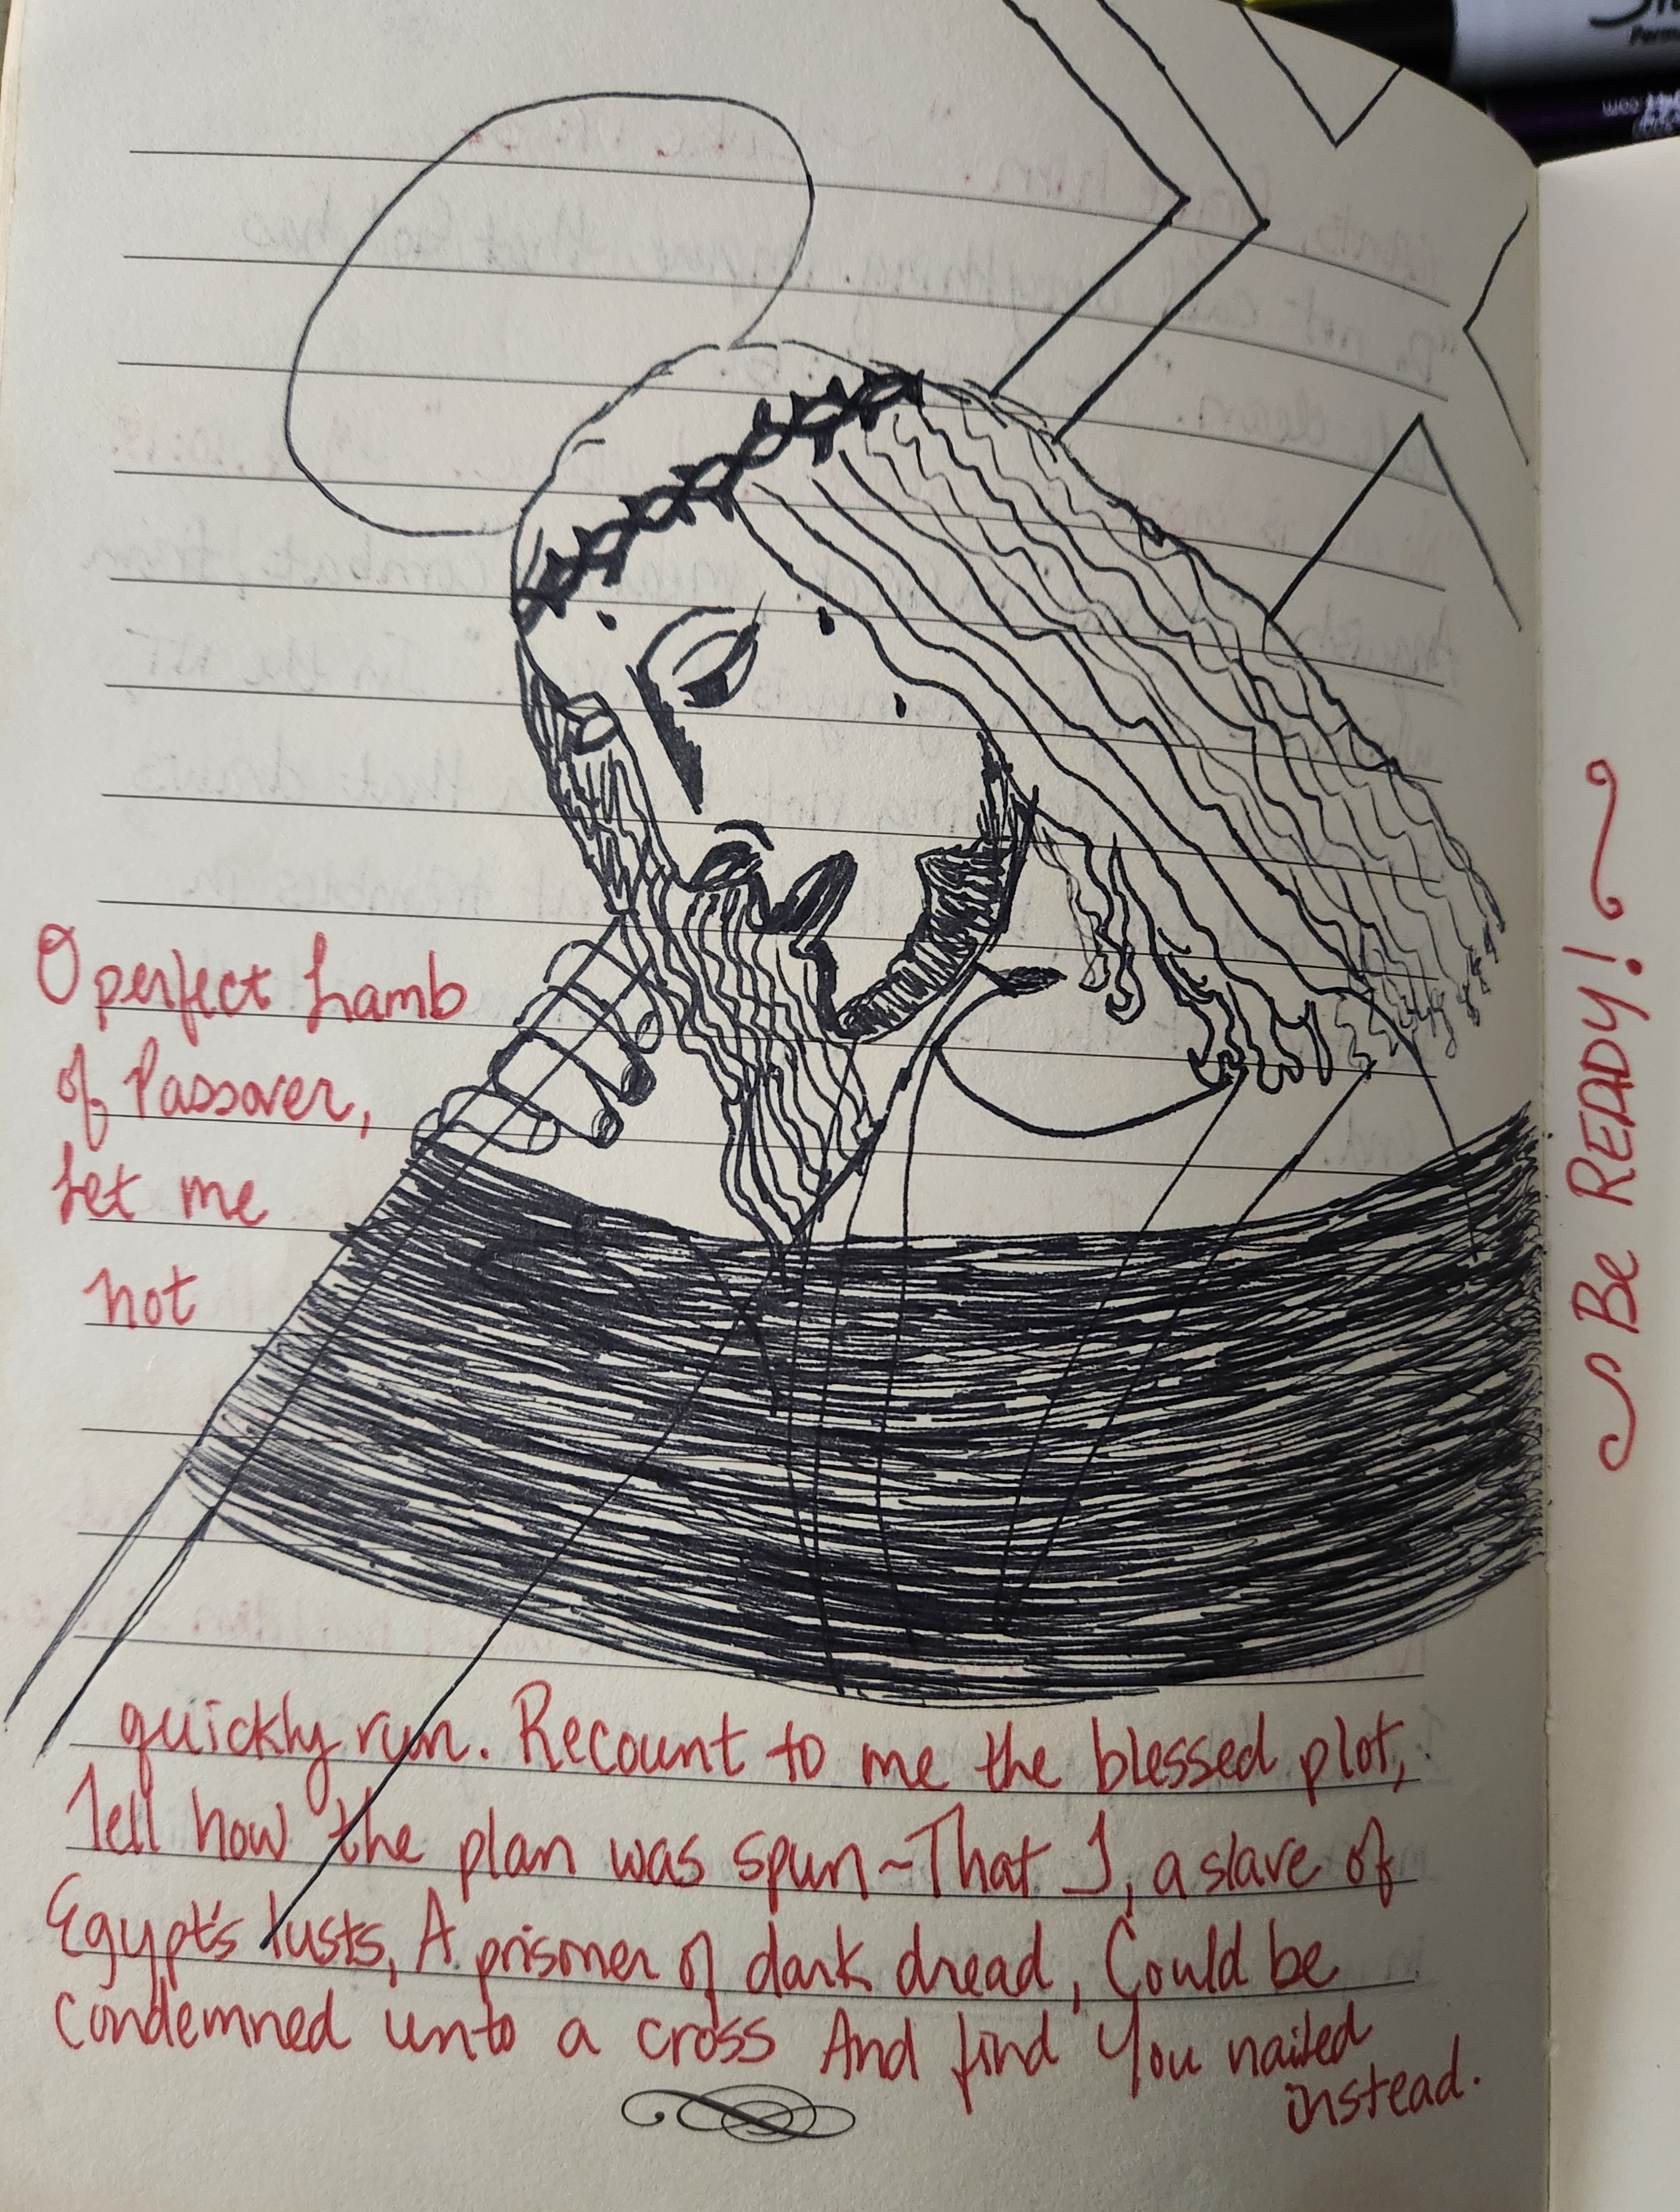 O perfect Lamb
of Passover,
Let me
not
quickly run. Recount to me the blessed plot,
Tell how the plan was spun~That I, a slave of
Egypt's lusts, A prisoner of dark dread, Could be
Condemned unto a cross And find You nailed
instead.
Be READY!